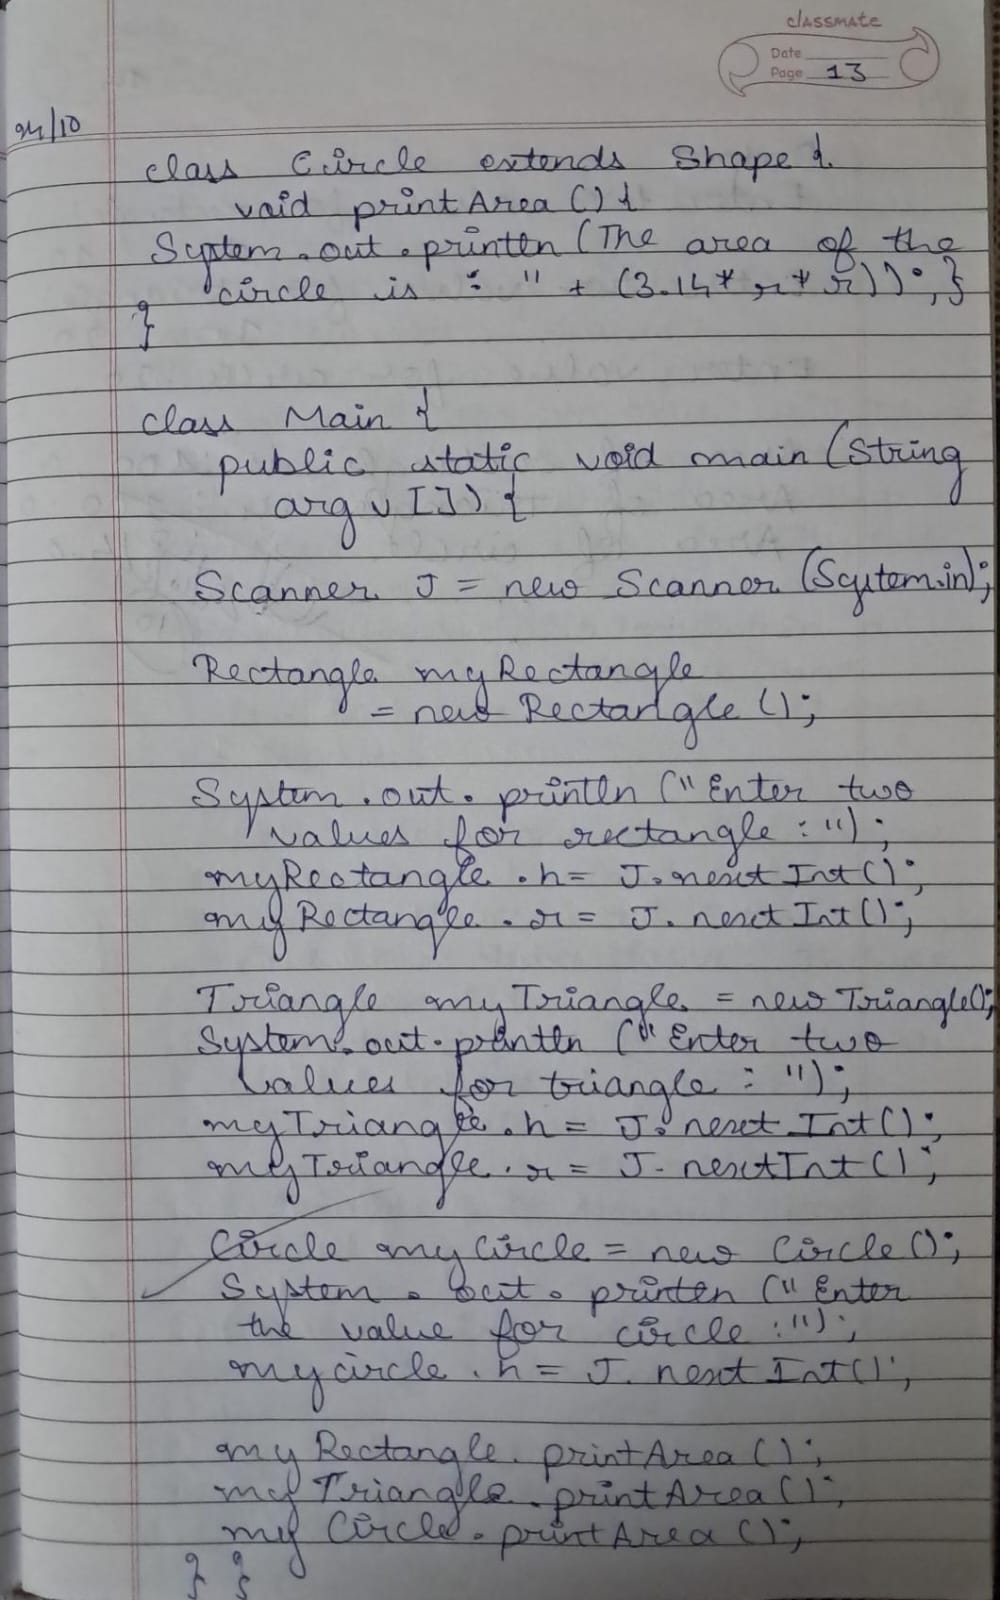 classmate
Date
Page 13
24/10
class Circle extends Shape {
void printArea () {
System.out.println (The area of the
circle is : " + (3.14* r * r)); }
}
class Main {
public static void main (String
argv []) {
Scanner J = new Scanner (System.in);
Rectangle myRectangle
= new Rectangle ();
System.out.println ("Enter two
values for rectangle : ");
myRectangle.h = J.nextInt();
myRectangle.r = J.nextInt();
Triangle myTriangle = new Triangle();
System.out.println ("Enter two
values for triangle : ");
myTriangle.h = J.nextInt();
myTriangle.r = J.nextInt();
Circle myCircle = new Circle ();
System.out.println ("Enter
the value for circle : ");
mycircle.h = J.nextInt();
myRectangle.printArea ();
myTriangle.printArea ();
myCircle.printArea ();
} }